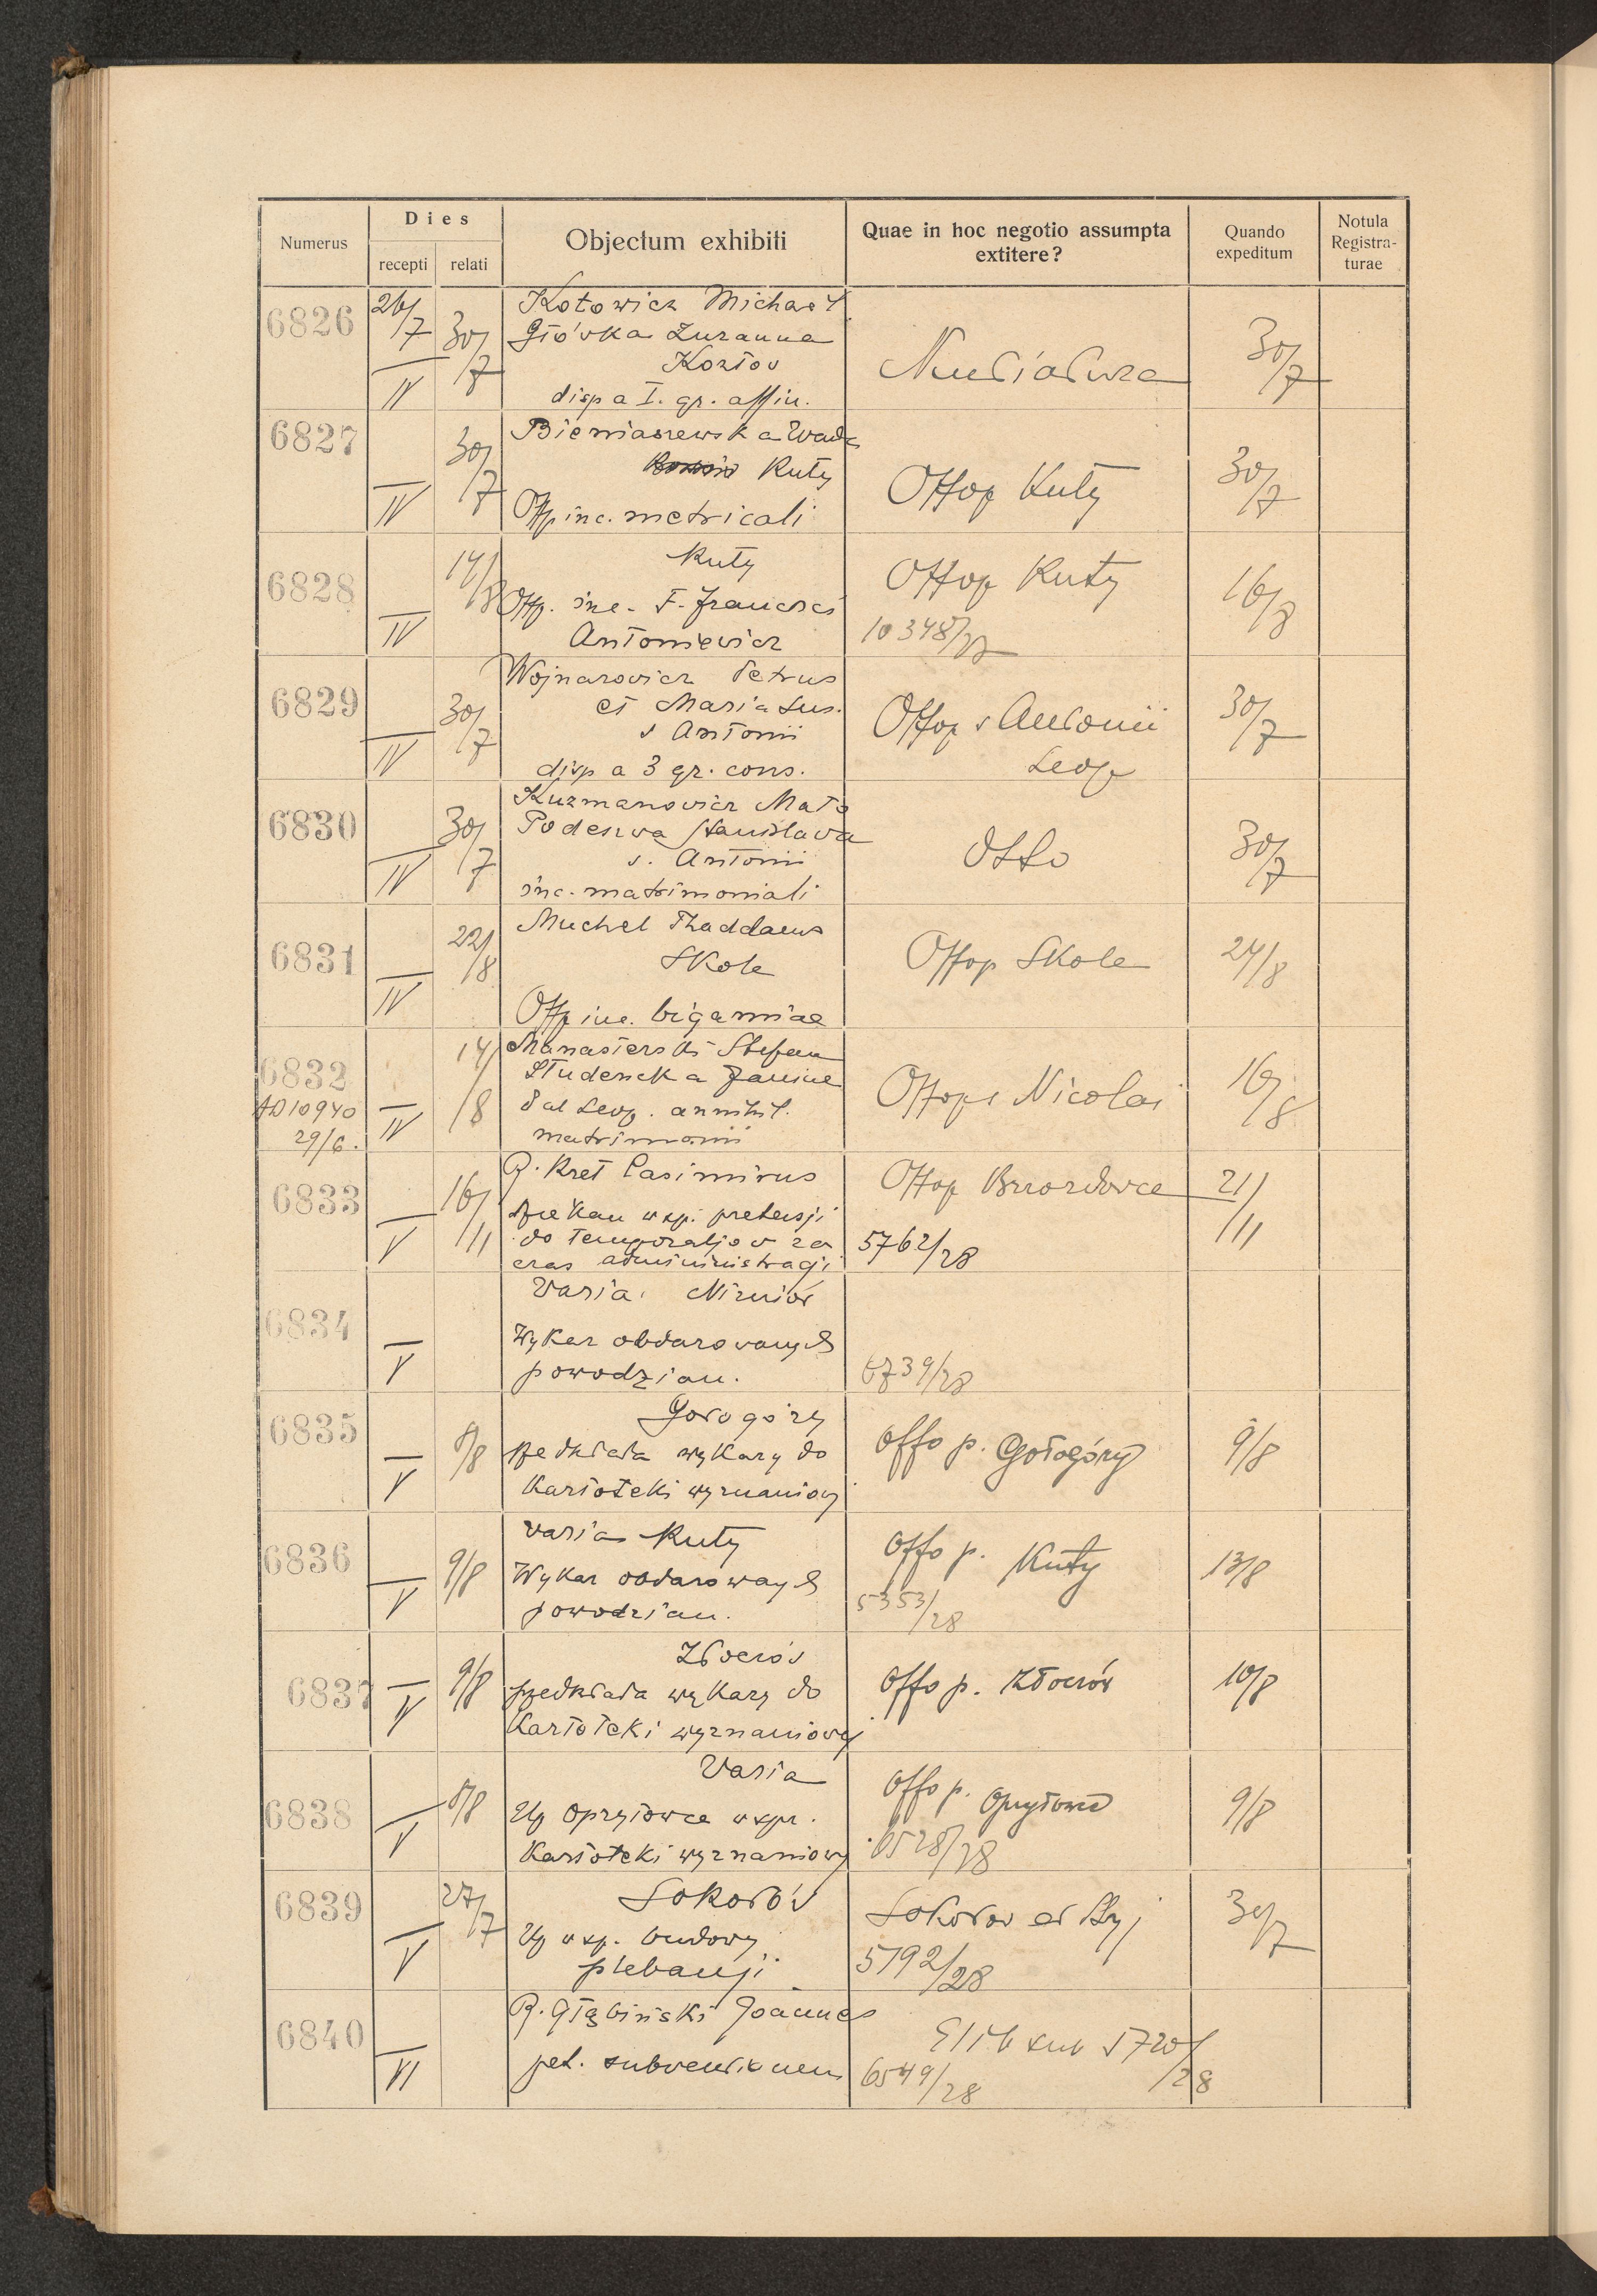 Numerus
Dies
recepti relati
Objectum exhibiti
Quae in hoc negotio assumpta
extitere?
Quando
expeditum
Notula
Registra-
turae
6826
26/7
IV
30/7
Kotowicz Michael
Główka Zuzanna
Kozłov
disp a I. gr. affin.
Nuntiatura
30/7
6827
IV
30/7
Bieniaszewska Wanda
Kuty
Offp inc. metricali
Offop Kuty
30/7
6828
IV
14/8
Kuty
Offp. inc. F. Francisci
Antoniewicz
Offop Kuty
10348/27
16/8
6829
IV
30/7
Wojnarovicz Petrus
et Maria Lus.
s Antonii
disp a 3 gr. cons.
Offop s Antonii
Leop
30/7
6830
IV
30/7
Kuzmanovicz Mato
Podeszwa Stanislava
s. Antonii
inc. matrimoniali
Offo
30/7
6831
IV
22/8
Muchel Thaddaeus
Skole
Offp inc. bigamiae
Offop Skole
24/8
6832
AD10940
29/6.
IV
14/8
Manasterski Stefan
Studencka Janina
Lal Leop. annihil.
matrimonii
Offop s Nicolai
16/8
6833
V
16/11
R. Kret Casimirus
Dziekan wsp. pretensji
do temporaljov za
czas administracji
Offop Brzozdowce
5762/28
21/11
6834
V
Varia. Nizniów
Wykaz obdarovanych
powodzian.
6739/28
6835
V
8/8
Gołogóry
przedkłada wykazy do
Kartoteki wyznaniowj
Offo p. Gołogóry
9/8
6836
V
9/8
Varia Kuty
Wykaz obdarowaych
powodzian.
Offo p. Kuty
5353/28
13/8
6837
V
9/8
Złoczóv
przedkłada wykazy do
Kartoteki wyznaniowej
Offo p. Złoczów
10/8
6838
V
8/8
Varia
Up Opryłowce wspr.
Kartoteki wyznaniowj
Offo p. Opryłowce
6528/28
9/8
6839
V
27/7
Sokołóv
Up wsp. budowy
plebanji
Sokołov et Stryj
5192/28
30/7
6840
VI
R. Głąbiński Joannes
pet. subventionem
Elib sub 5720/28
6549/28